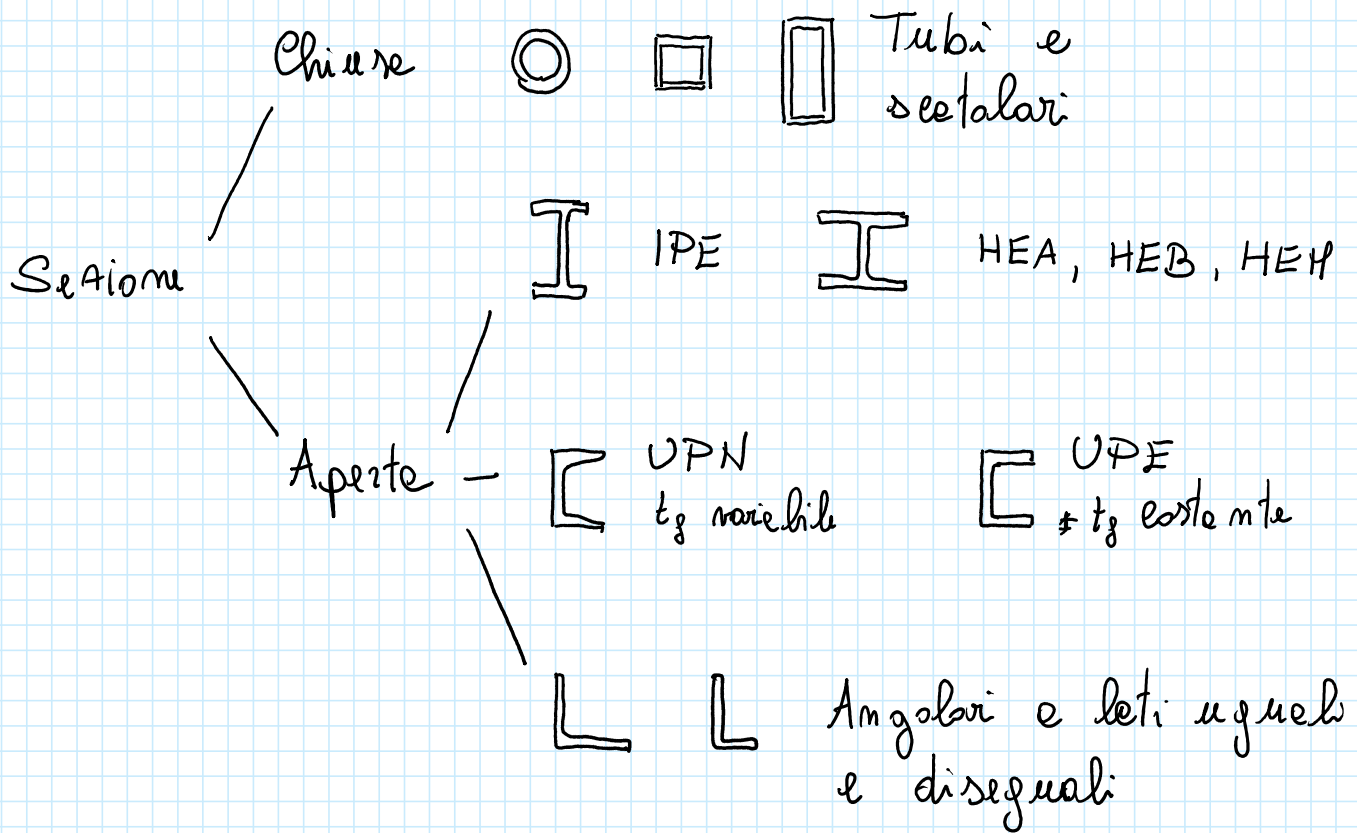 Chiuse
Tubi e
scatolari
Sezione
IPE
HEA, HEB, HEM
Aperte
UPN
tf variabile
UPE
tf costante
Angolari a lati uguali
e diseguali